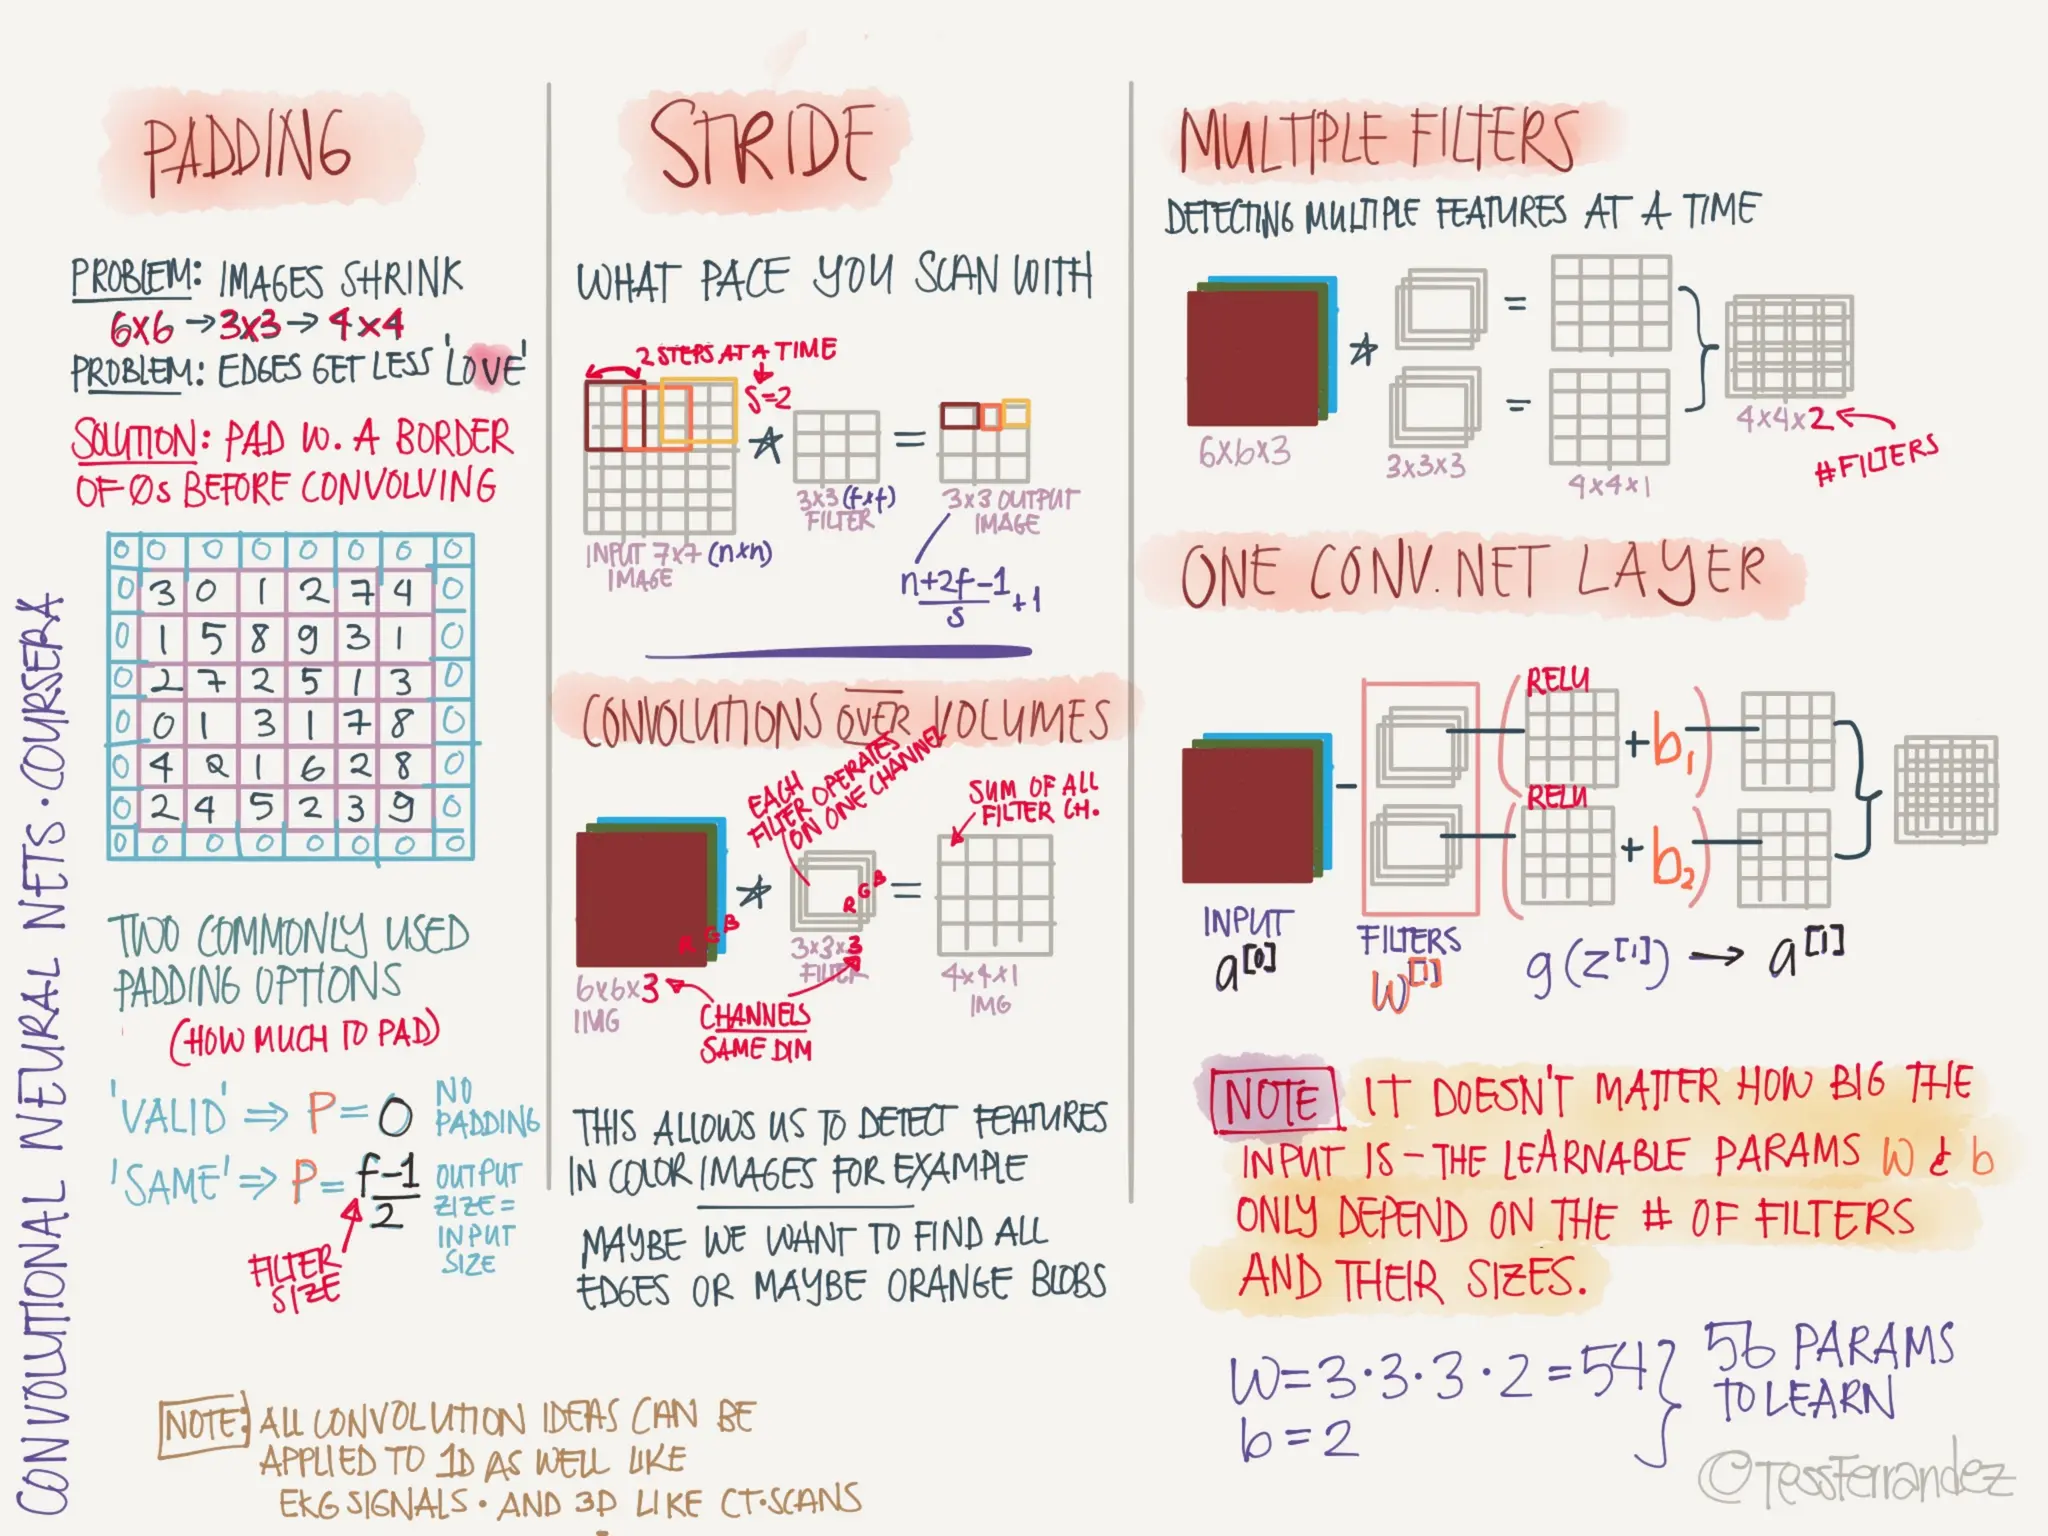 CONVOLUTIONAL NEURAL NETS · COURSERA
PADDING
PROBLEM: IMAGES SHRINK
6x6 → 3x3 → 4x4
PROBLEM: EDGES GET LESS 'LOVE'
SOLUTION: PAD W. A BORDER
OF 0s BEFORE CONVOLVING
0 0 0 0 0 0 0 0
0 3 0 1 2 7 4 0
0 1 5 8 9 3 1 0
0 2 7 2 5 1 3 0
0 0 1 3 1 7 8 0
0 4 2 1 6 2 8 0
0 2 4 5 2 3 9 0
0 0 0 0 0 0 0 0
TWO COMMONLY USED
PADDING OPTIONS
(HOW MUCH TO PAD)
'VALID' ⇒ P = 0 NO
PADDING
'SAME' ⇒ P = f-1/2 OUTPUT
ZIZE =
INPUT
SIZE
FILTER
SIZE
NOTE: ALL CONVOLUTION IDEAS CAN BE
APPLIED TO 1D AS WELL LIKE
EKG SIGNALS · AND 3D LIKE CT·SCANS
STRIDE
WHAT PACE YOU SCAN WITH
2 STEPS AT A TIME
S=2
INPUT 7x7 (nxn)
IMAGE
3x3 (fxf)
FILTER
=
3x3 OUTPUT
IMAGE
n+2f-1/s +1
CONVOLUTIONS OVER VOLUMES
EACH
FILTER OPERATES
ON ONE CHANNEL
SUM OF ALL
FILTER CH.
R G B
R G B
=
6x6x3
IMG
3x3x3
FILTER
4x4x1
IMG
CHANNELS
SAME DIM
THIS ALLOWS US TO DETECT FEATURES
IN COLOR IMAGES FOR EXAMPLE
MAYBE WE WANT TO FIND ALL
EDGES OR MAYBE ORANGE BLOBS
MULTIPLE FILTERS
DETECTING MULTIPLE FEATURES AT A TIME
=
=
6x6x3
3x3x3
4x4x1
4x4x2
#FILTERS
ONE CONV. NET LAYER
RELU
+ b1
RELU
+ b2
INPUT
a[0]
FILTERS
W[1]
g(z[1]) → a[1]
NOTE IT DOESN'T MATTER HOW BIG THE
INPUT IS - THE LEARNABLE PARAMS W & b
ONLY DEPEND ON THE # OF FILTERS
AND THEIR SIZES.
W = 3·3·3·2 = 54
b = 2
56 PARAMS
TO LEARN
@TessFerrandez